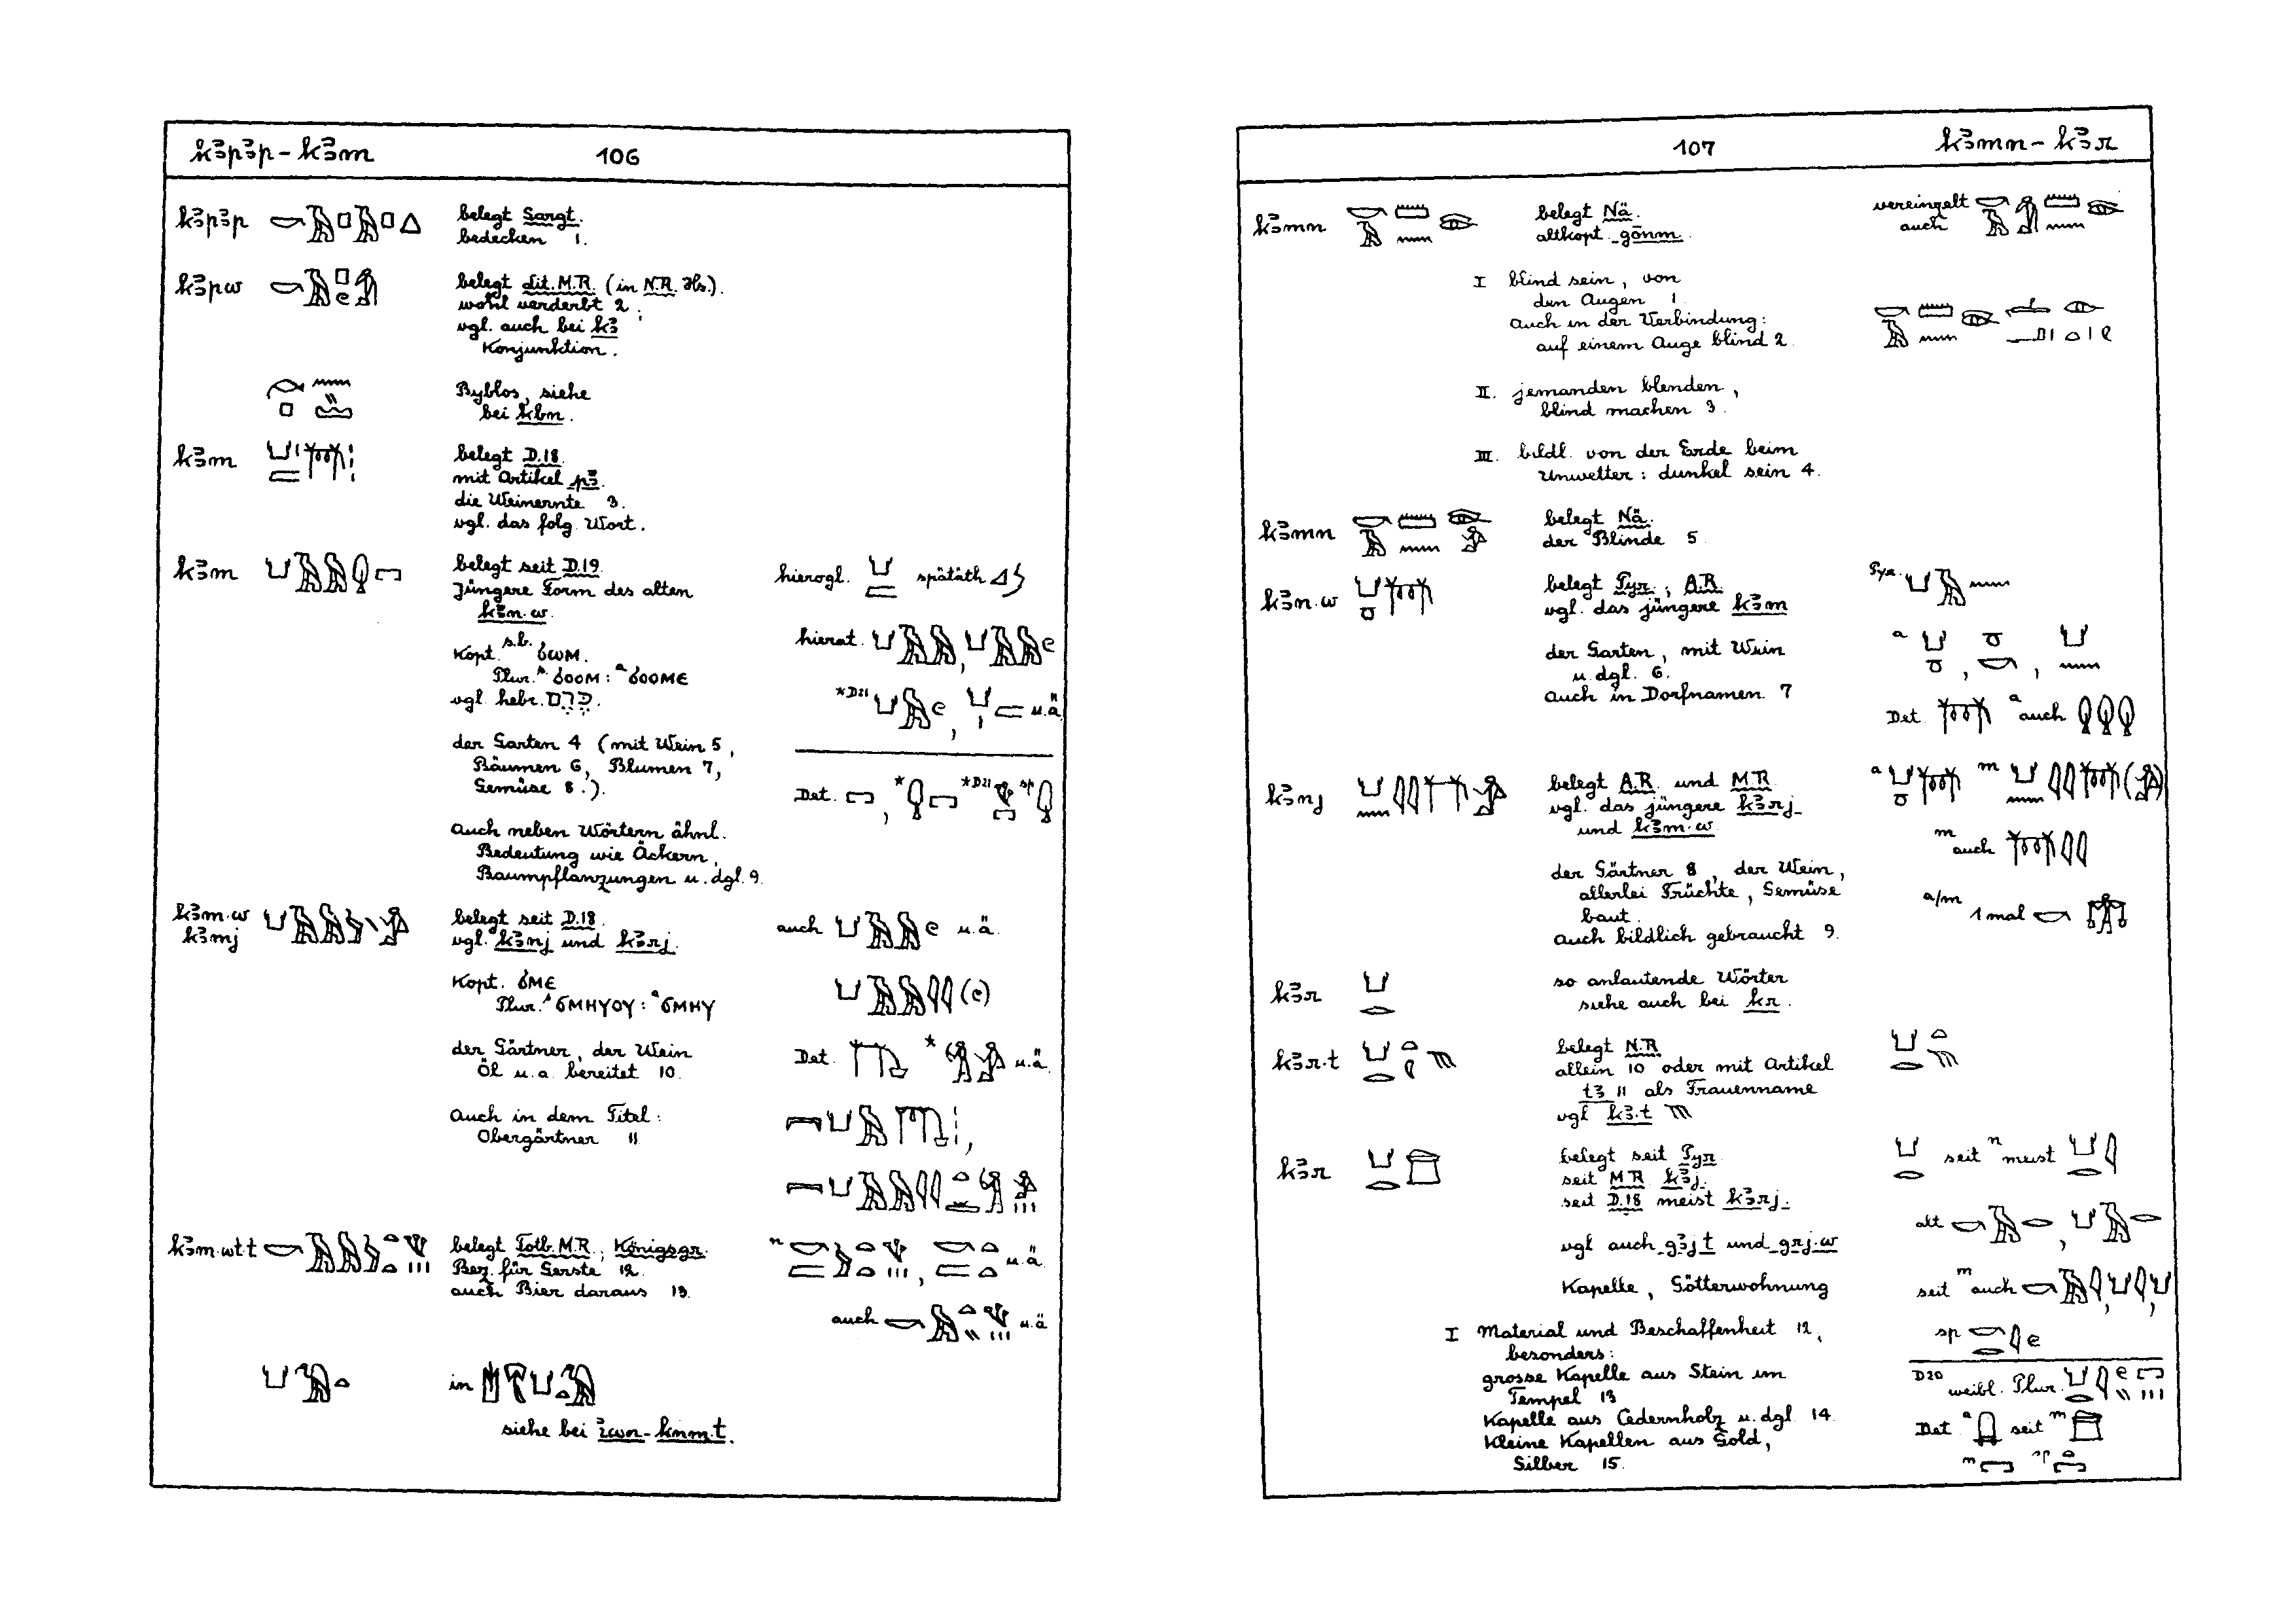 kꜣpꜣp - kꜣm 106
kꜣpꜣp belegt Sargt.
bedecken 1.
kꜣpw belegt Lit. M.R. (in N.R. Hs.).
wohl verderbt 2 ;
vgl. auch bei kꜣ
Konjunktion.
Byblos, siehe
bei kbn.
kꜣm belegt D.18
mit Artikel pꜣ.
die Weinernte 3.
vgl. das folg. Wort.
kꜣm belegt seit D.19
Jüngere Form des alten
kꜣn.w.
Kopt. s.b. ϭⲱⲙ.
Plur. ϭⲟⲟⲙ : ϭⲟⲟⲙⲉ
vgl. hebr. כרם.
der Garten 4 (mit Wein 5,
Bäumen 6, Blumen 7,
Gemüse 8.).
Auch neben Wörtern ähnl.
Bedeutung wie Äckern,
Baumpflanzungen u. dgl. 9.
hierogl. spätäth
hierat. ,
*D21 , u.ä.
Det. , * *D21 sp
kꜣm.w
kꜣmj
belegt seit D.18.
vgl. kꜣnj und kꜣrj.
Kopt. ϭⲙⲉ
Plur. ϭⲙⲏⲩⲟⲩ : ϭⲙⲏⲩ
der Gärtner, der Wein
Öl u.a. bereitet 10.
Auch in dem Titel:
Obergärtner 11
auch u.ä.
Det. * u.ä.
kꜣm.wt.t belegt Totb. M.R., Königsgr.
Bez. für Gerste 12.
auch Bier daraus 13.
n , u.ä.
auch u.ä
in
siehe bei ꜣwr-knm.t.
107 kꜣmn - kꜣr
kꜣmn belegt Nä.
altkopt. gōnm.
vereinzelt
auch
I blind sein, von
den Augen 1
Auch in der Verbindung:
auf einem Auge blind 2.
II. jemanden blenden,
blind machen 3.
III. bildl. von der Erde beim
Unwetter: dunkel sein 4.
kꜣmn belegt Nä.
der Blinde 5
kꜣn.w belegt Pyr., A.R.
vgl. das jüngere kꜣm
der Garten, mit Wein
u. dgl. 6.
Auch in Dorfnamen 7
Pyr.
a , ,
Det. a auch
kꜣnj belegt A.R. und M.R.
vgl. das jüngere kꜣrj
und kꜣm.w
der Gärtner 8, der Wein,
allerlei Früchte, Gemüse
baut.
Auch bildlich gebraucht 9.
a m
m auch
a/m 1 mal
kꜣr so anlautende Wörter
siehe auch bei kr.
kꜣr.t belegt N.R.
allein 10 oder mit Artikel
tꜣ 11 als Frauenname
vgl kꜣ.t
kꜣr belegt seit Pyr
seit M.R. kꜣj.
seit D.18 meist kꜣrj.
vgl auch gꜣj.t und grj.w
Kapelle, Götterwohnung
I Material und Beschaffenheit 12,
besonders:
grosse Kapelle aus Stein im
Tempel 13
Kapelle aus Cedernholz u. dgl. 14.
Kleine Kapellen aus Gold,
Silber 15.
seit n meist
alt ,
seit m auch , ,
sp
D20 weibl. Plur.
Det a seit m
m sp